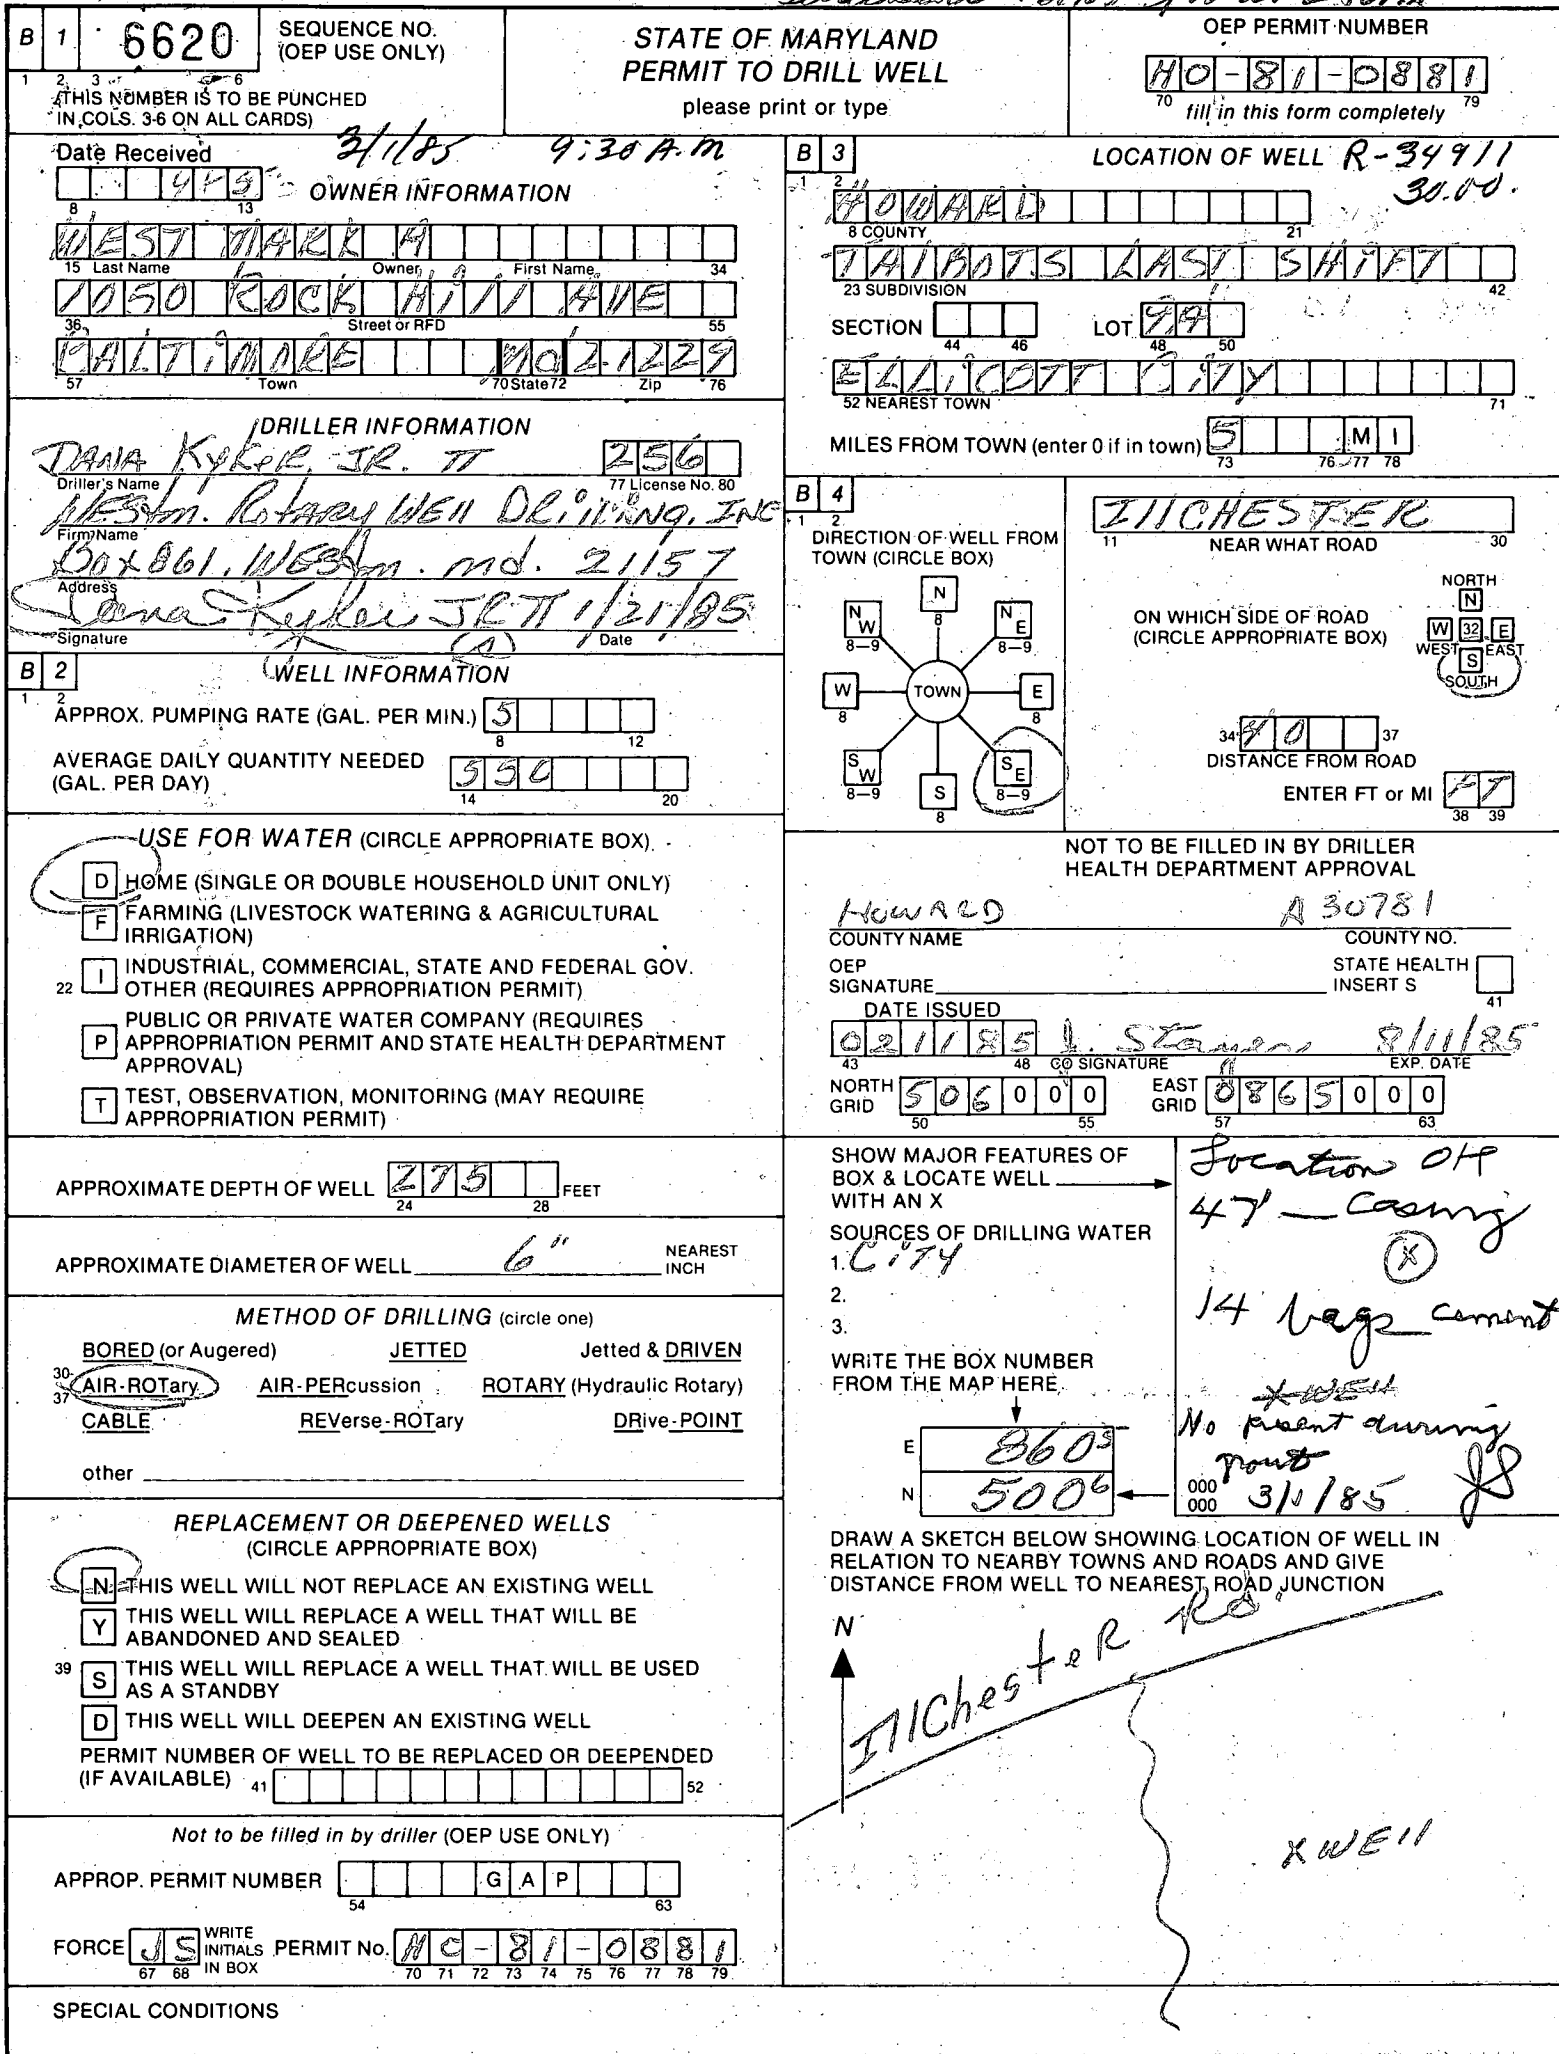 B 1 6620 SEQUENCE NO. (OEP USE ONLY)
1 2 3 6
(THIS NUMBER IS TO BE PUNCHED
IN COLS. 3-6 ON ALL CARDS)
STATE OF MARYLAND
PERMIT TO DRILL WELL
please print or type
OEP PERMIT NUMBER
HO-81-0881
70 79
fill in this form completely
Date Received 3/1/85 9:30 A.M
8 13
OWNER INFORMATION
WEST MARK A
15 Last Name Owner First Name 34
1050 ROCK Hill AVE
36 Street or RFD 55
BALTIMORE MD 21229
57 Town 70 State 72 Zip 76
DRILLER INFORMATION
DANA KyKeR. JR. II 256
Driller's Name 77 License No. 80
WESTm. RotARy WEll DRilliNG, INC
Firm Name
Box 861. WESTm. md. 21157
Address
Dana Kyker JR II 1/21/85
Signature Date
B 2 WELL INFORMATION
1 2
APPROX. PUMPING RATE (GAL. PER MIN.) 5
8 12
AVERAGE DAILY QUANTITY NEEDED
(GAL. PER DAY) 550
14 20
USE FOR WATER (CIRCLE APPROPRIATE BOX)
D HOME (SINGLE OR DOUBLE HOUSEHOLD UNIT ONLY)
F FARMING (LIVESTOCK WATERING & AGRICULTURAL
IRRIGATION)
22 I INDUSTRIAL, COMMERCIAL, STATE AND FEDERAL GOV.
OTHER (REQUIRES APPROPRIATION PERMIT)
P PUBLIC OR PRIVATE WATER COMPANY (REQUIRES
APPROPRIATION PERMIT AND STATE HEALTH DEPARTMENT
APPROVAL)
T TEST, OBSERVATION, MONITORING (MAY REQUIRE
APPROPRIATION PERMIT)
APPROXIMATE DEPTH OF WELL 275 FEET
24 28
APPROXIMATE DIAMETER OF WELL 6" NEAREST
INCH
METHOD OF DRILLING (circle one)
BORED (or Augered) JETTED Jetted & DRIVEN
30-37 AIR-ROTary AIR-PERcussion ROTARY (Hydraulic Rotary)
CABLE REVerse-ROTary DRive-POINT
other
REPLACEMENT OR DEEPENED WELLS
(CIRCLE APPROPRIATE BOX)
N THIS WELL WILL NOT REPLACE AN EXISTING WELL
Y THIS WELL WILL REPLACE A WELL THAT WILL BE
ABANDONED AND SEALED
39 S THIS WELL WILL REPLACE A WELL THAT WILL BE USED
AS A STANDBY
D THIS WELL WILL DEEPEN AN EXISTING WELL
PERMIT NUMBER OF WELL TO BE REPLACED OR DEEPENDED
(IF AVAILABLE) 41 52
Not to be filled in by driller (OEP USE ONLY)
APPROP. PERMIT NUMBER G A P
54 63
FORCE JS WRITE INITIALS IN BOX PERMIT No. HO-81-0881
67 68 70 71 72 73 74 75 76 77 78 79
SPECIAL CONDITIONS
B 3 LOCATION OF WELL R-34911
1 2 30.00.
HOWARD
8 COUNTY 21
TAlBOTS LAST SHIFT
23 SUBDIVISION 42
SECTION LOT
44 46 48 50
ELLiCOTT CiTY
52 NEAREST TOWN 71
MILES FROM TOWN (enter 0 if in town) 5 M I
73 76 77 78
B 4
1 2
DIRECTION OF WELL FROM
TOWN (CIRCLE BOX)
N
8
NW NE
8-9 8-9
W TOWN E
8 8
SW SE
8-9 8-9
S
8
IllCHESTER
11 NEAR WHAT ROAD 30
ON WHICH SIDE OF ROAD
(CIRCLE APPROPRIATE BOX)
NORTH
N
W 32 E
WEST EAST
S
SOUTH
34 40 37
DISTANCE FROM ROAD
ENTER FT or MI FT
38 39
NOT TO BE FILLED IN BY DRILLER
HEALTH DEPARTMENT APPROVAL
HOWARD A 30781
COUNTY NAME COUNTY NO.
OEP
SIGNATURE
STATE HEALTH
INSERT S
41
DATE ISSUED
021185 8/11/85
43 48 CO SIGNATURE EXP. DATE
NORTH GRID 506000 EAST GRID 0865000
50 55 57 63
SHOW MAJOR FEATURES OF
BOX & LOCATE WELL
WITH AN X
SOURCES OF DRILLING WATER
1. CiTY
2.
3.
WRITE THE BOX NUMBER
FROM THE MAP HERE
E 8605
N 5006
Location OK
47' — Casing
X
14 bags cement
X WEll
No present during
grout
000
000 3/1/85 JS
DRAW A SKETCH BELOW SHOWING LOCATION OF WELL IN
RELATION TO NEARBY TOWNS AND ROADS AND GIVE
DISTANCE FROM WELL TO NEAREST ROAD JUNCTION
N
IllChesteR Rd.
X WEll